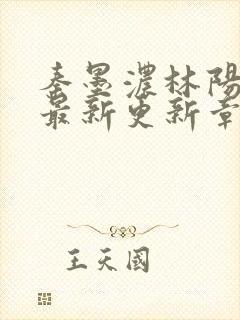 秦墨濃林陽
最新更新章
王天國